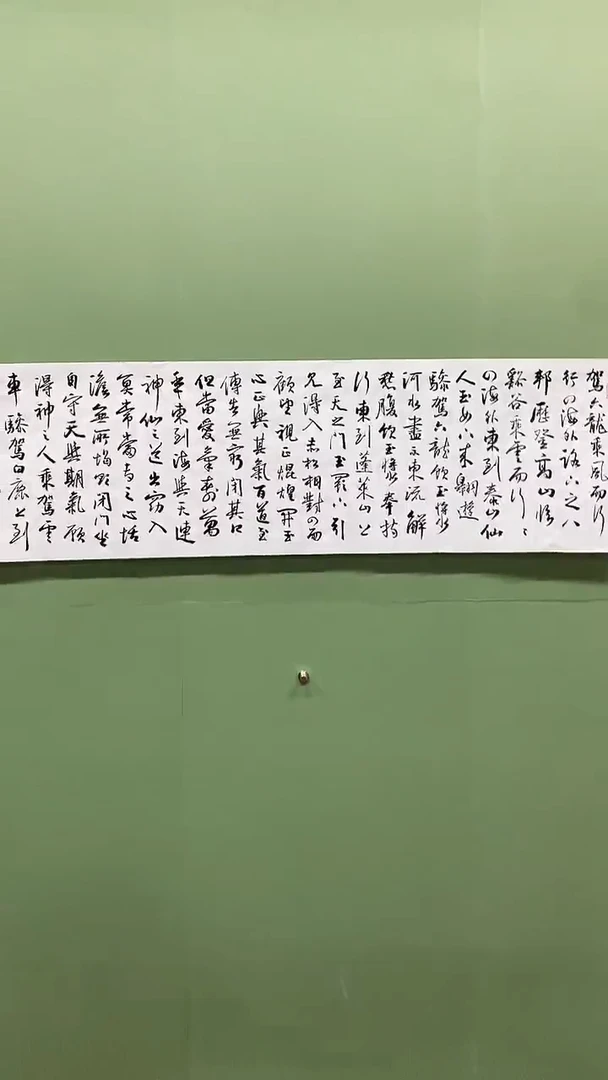 駕六龍乘風而行
行四海外路下之八
邦歷登高山臨
谿谷乘雲而行〻
四海外東到泰山仙
人玉女下來翱遊
驂駕六龍飲玉漿
河水盡不東流解
愁腹飲玉漿奉持
行東到蓬萊山上
至天之門玉闕下引
見得入赤松相對四面
顧望視正焜煌開玉
心正興其氣百道至
傳告無窮閉其口
但當愛氣壽萬
年東到海與天連
神仙之道出窈入
冥常當專之心恬
澹無所愒欲閉門坐
自守天與期氣願
得神之人乘駕雲
車驂駕白鹿上到